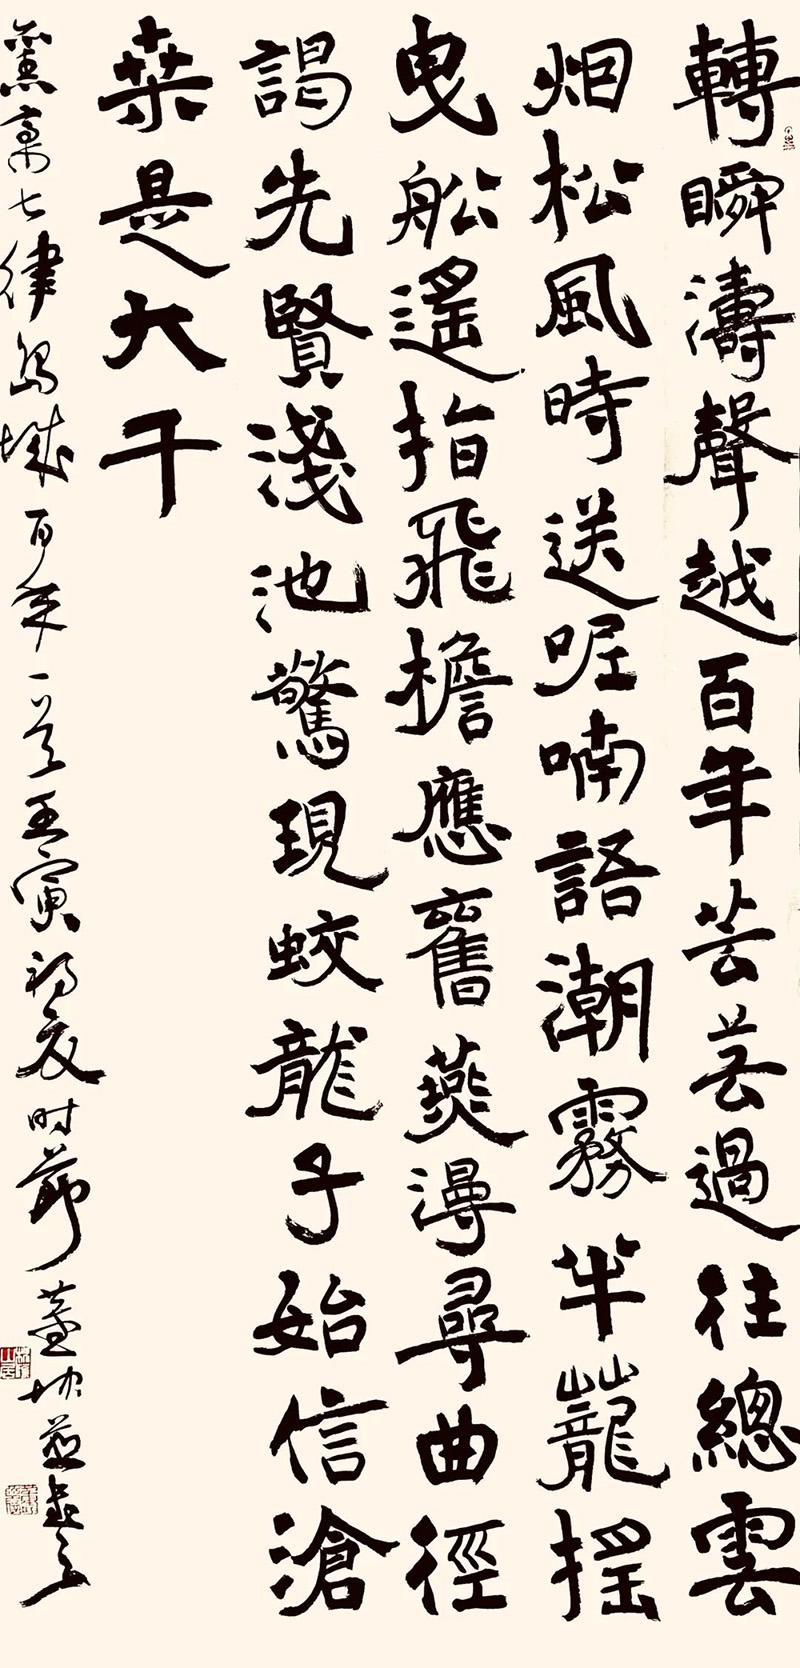 轉瞬濤聲越百年芸芸過往總雲
烟松風時送呢喃語潮霧半蘢摇
曳船遥指飛檐應舊燕漫尋曲徑
謁先賢淺池驚現蛟龍子始信滄
桑是大千
稾七律島城百年一首壬寅初夏时節